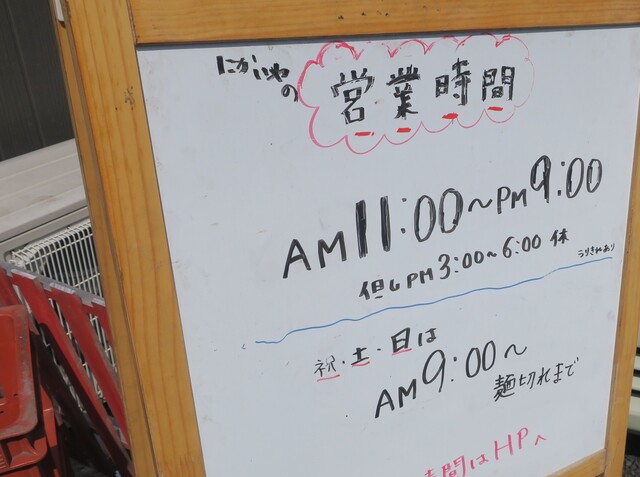 にかいやの
営業時間
AM11:00～PM9:00
但しPM3:00～6:00 休
うりきれあり
祝・土・日は
AM9:00～
麺切れまで
時間はHPへ